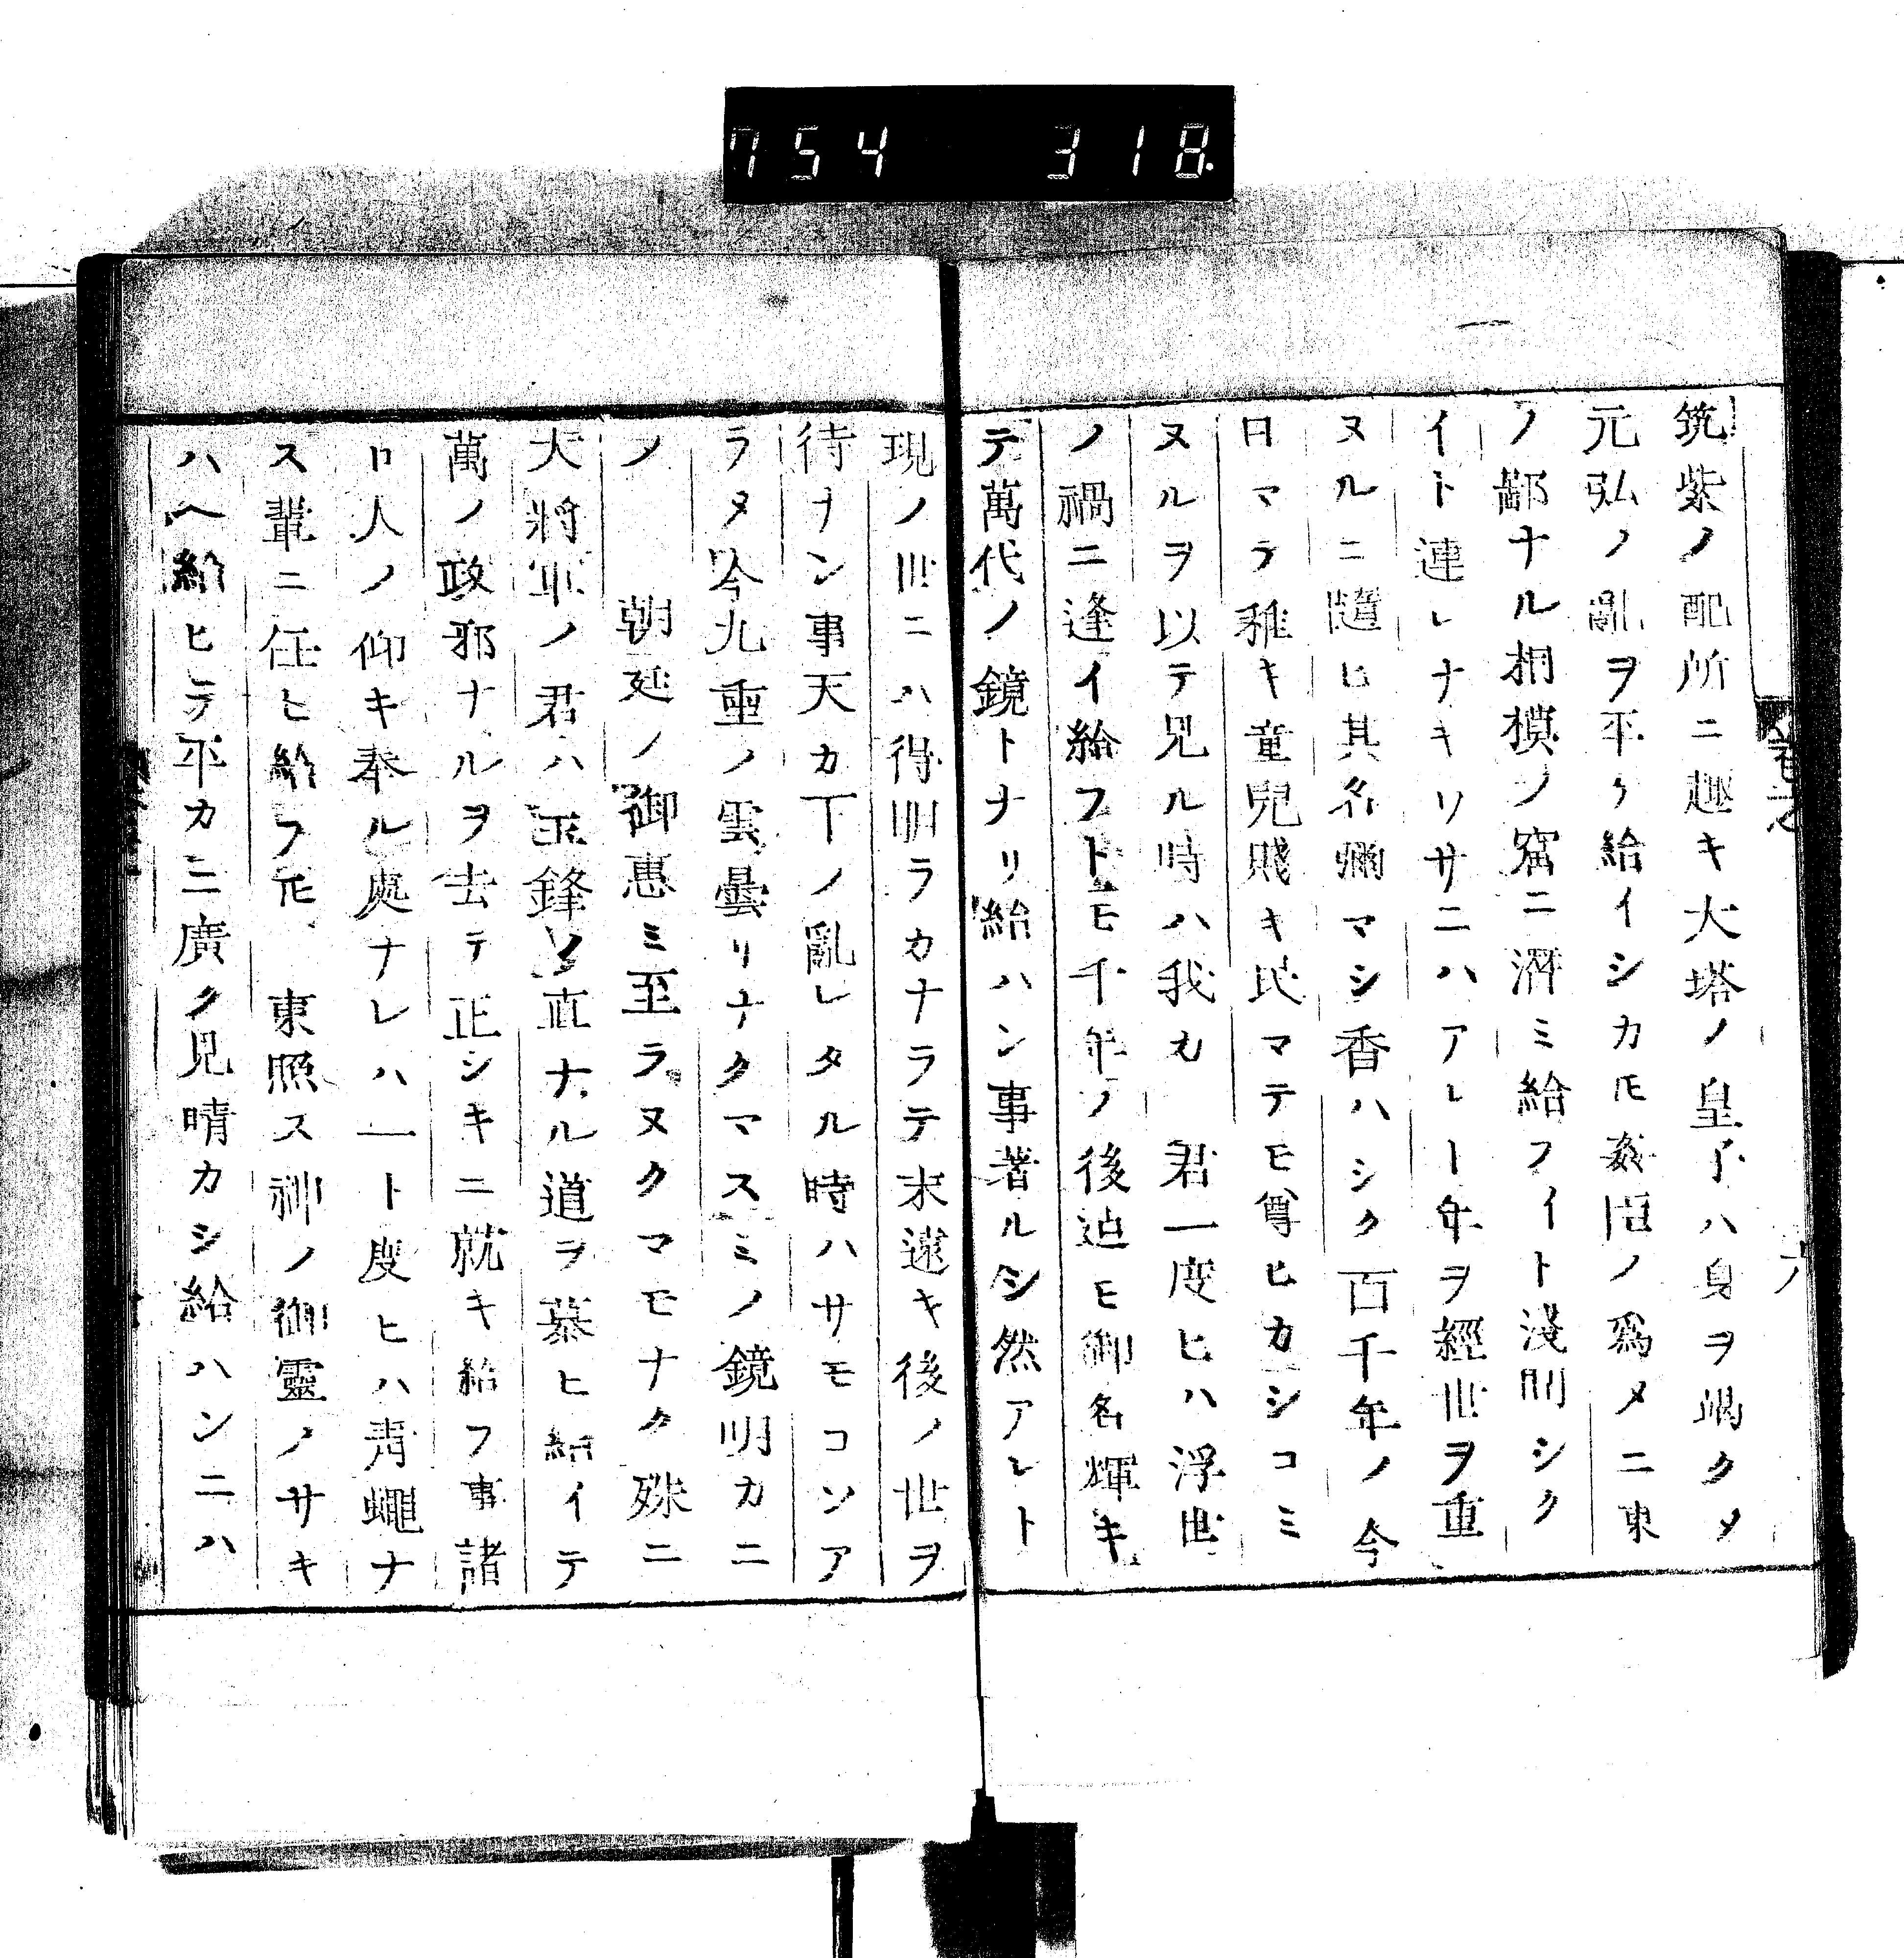 754 318
筑紫ノ配所ニ趣キ大塔ノ皇子ハ身ヲ竭クメ
元弘ノ亂ヲ平ケ給イシカ𪜈姦臣ノ爲メニ東
ノ鄙ナル相模ノ窟ニ濟ミ給フイト淺間シク
イト連レナキリサニハアレー年ヲ經世ヲ重
ヌルニ隨ヒ其名彌マシ香ハシク百千年ノ今
日マテ稚キ童兒賎キ民マテモ尊ヒカシコミ
ヌルヲ以テ見ル時ハ我カ 君一度ヒハ浮世
ノ禍ニ逢イ給フトモ千年ノ後迠モ御名煇キ
テ萬代ノ鏡トナリ給ハン事著ルシ然アレト
現ノ世ニハ得明ラカナラテ末遠キ後ノ世ヲ
待ナン事天カ下ノ亂レタル時ハサモコソア
ラメ今九重ノ雲曇リナクマスミノ鏡明カニ
ノ 朝廷ノ御惠ミ至ラヌクマモナク殊ニ
大將軍ノ君ハ玉鋒ノ直ナル道ヲ慕ヒ給イテ
萬ノ政邪ナルヲ去テ正シキニ就キ給フ事諸
ロ人ノ仰キ奉ル處ナレハ一ト度ヒハ靑蠅ナ
ス輩ニ任ヒ給フ𪜈 東照ス神ノ御靈ノサキ
ハヘ給ヒテ平カニ廣ク見晴カシ給ハンニハ